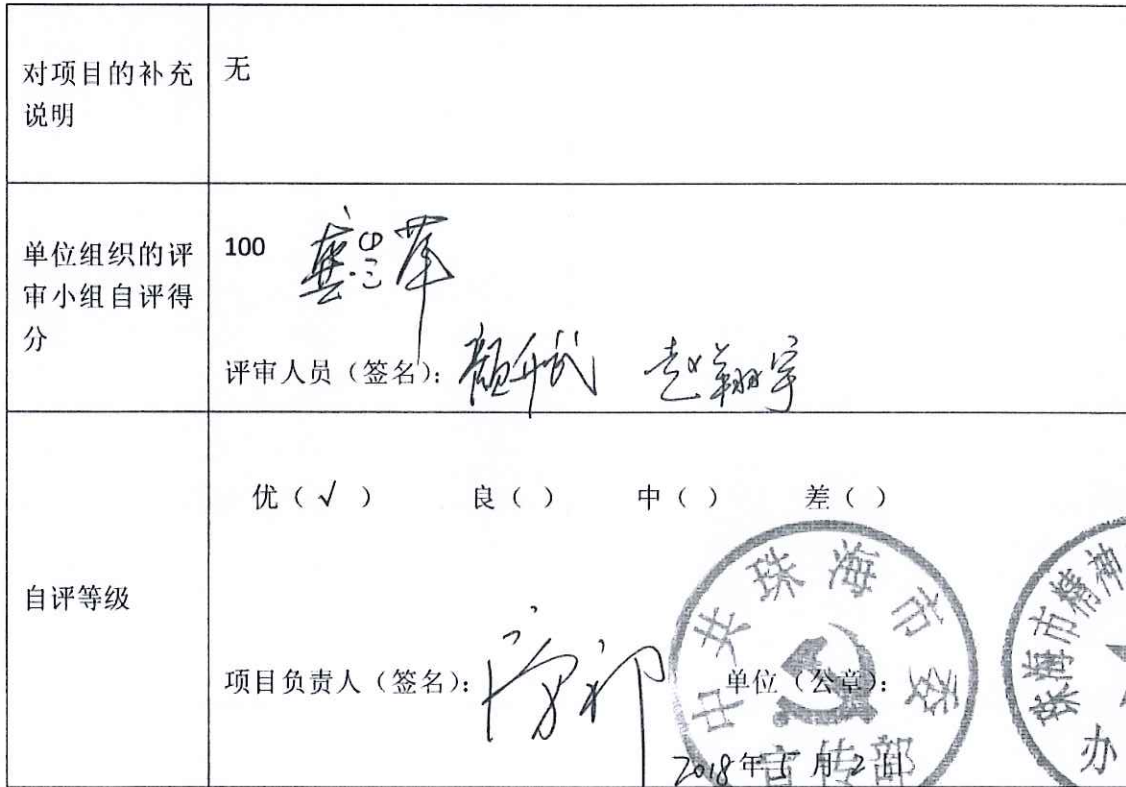 对项目的补充
说明
无
单位组织的评
审小组自评得
分
100
评审人员（签名）： 颜升武 赵翔宇
自评等级
优（√） 良（ ） 中（ ） 差（ ）
项目负责人（签名）：
单位（公章）：
2018年5月2日
中共珠海市委
宣传部
珠海市精神
办